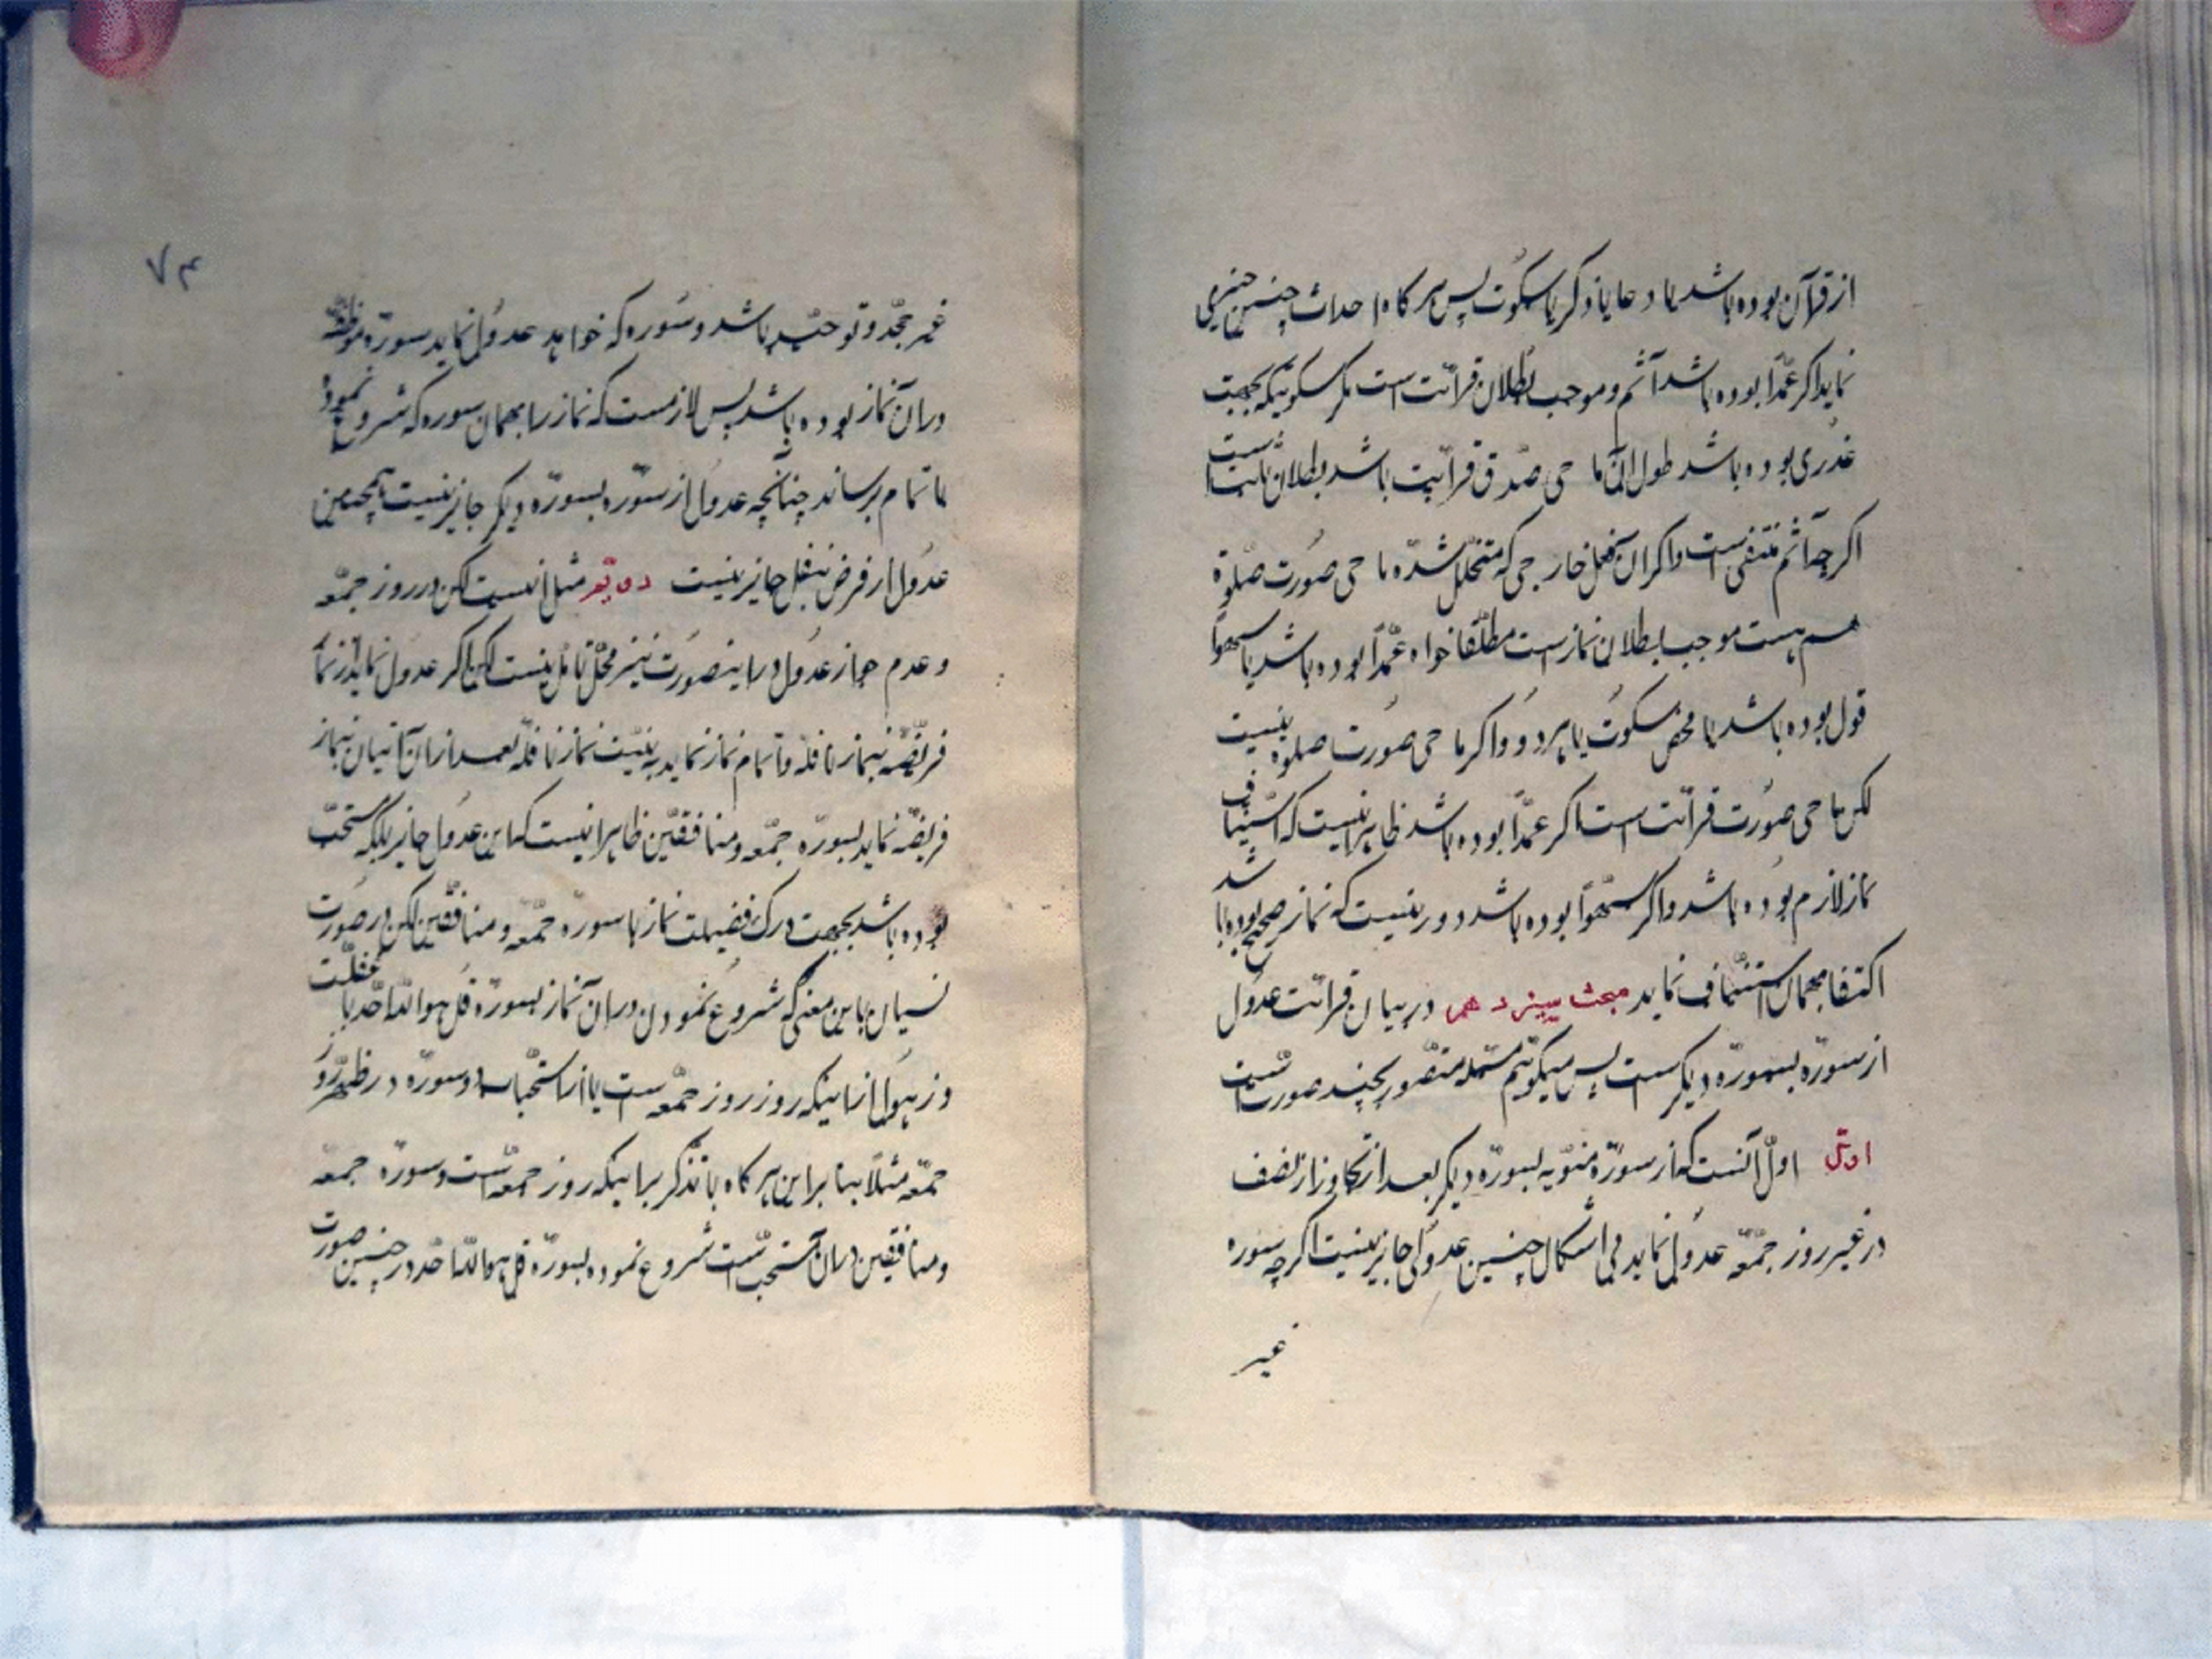 از قرآن بوده باشد یا دعا یا ذکر یا سکوت پس هر کاه احداث چنین چیزی
نماید اکر عمداً بوده باشد آثم و موجب بطلان قرائت است مکر سکوتیکه بجهت
عذری بوده باشد طول آن ما حی صدق قرائت باشد بطلان ثابت است
اکر چه آثم منتفی است و اکر آن فعل خارجی که متخلل شده ما حی صورت صلوة
هم هست موجب بطلان نماز است مطلقا خواه عمداً بوده باشد یا سهواً
قول بوده باشد یا محض سکوت یا هر دو و اکر ما حی صورت صلوة نیست
لکن ما حی صورت قرائت است اکر عمداً بوده باشد ظاهر اینست که استیناف
نماز لازم بوده باشد و اکر سهواً بوده باشد دور نیست که نماز صحیح بوده باشد
اکتفا بهمان استیناف نماید مبحث سیزدهم در بیان قرائت عدول
از سوره بسوره دیکر است پس میکوئیم مسئله متصور بچند صورت است
اول اول آنست که از سوره منویه بسوره دیکر بعد از تجاوز از نصف
در غیر روز جمعه عدول نماید بی اشکال چنین عدولی جایز نیست اکر چه سوره
غیر
۷۴
غیر جحد و توحید باشد و سوره که خواهد عدول نماید سوره موظفه
در آن نماز بوده باشد پس لازمست که نماز را بهمان سوره که شروع نموده
باتمام برساند چنانچه عدول از سوره بسوره دیکر جایز نیست همچنین
عدول از فرض بنفل جایز نیست دویم مثل اینست لکن در روز جمعه
و عدم جواز عدول در اینصورت نیز محل تامل نیست لکن اکر عدول نماید از نماز
فریضه بنماز نافله و اتمام نماز نماید به نیت نماز نافله بعد از آن اتیان بنماز
فریضه نماید بسوره جمعه و منافقین ظاهر اینست که این عدول جایز بلکه مستحب
بوده باشد بجهت درک فضیلت نماز با سوره جمعه و منافقین لکن در صورت
نسیان باین معنی که شروع نمودن در آن نماز بسوره قل هو الله احد با غفلت
و زهول از اینکه روز روز جمعه است یا از استحباب دو سوره در ظهر روز
جمعه مثلاً بنا براین هر کاه با تذکر براینکه روز جمعه است و سوره جمعه
و منافقین در آن مستحب است شروع نموده بسوره قل هو الله احد در چنین صورت